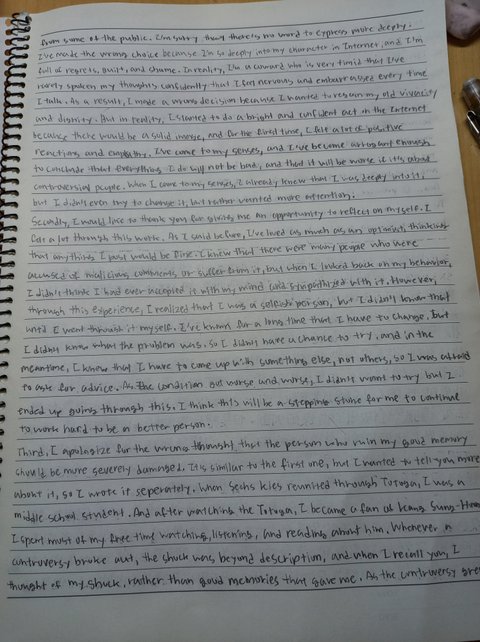 from some of the public. I'm sorry that there is no word to express more deeply.
I've made the wrong choice because I'm so deeply into my character in Internet, and I'm
full of regrets, guilt, and shame. In reality, I'm a coward who is very timid that I've
rarely spoken my thoughts confidently that I feel nervous and embarrassed every time
I talk. As a result, I made a wrong decision because I wanted to regain my old vivacity
and dignity. But in reality, I started to do a bright and confident act on the Internet
because there would be a solid image, and for the first time, I felt a lot of positive
reactions and empathy. I've come to my senses, and I've become arrogant enough
to conclude that everything I do will not be bad, and that it will be worse if it's about
controversial people. When I came to my senses, I already knew that I was deeply into it,
but I didn't even try to change it, but rather wanted more attention.
Secondly, I would like to thank you for giving me an opportunity to reflect on myself. I
felt a lot through this work. As I said before, I've lived as much as an optimist, thinking
that anything I just would be fine. I knew that there were many people who were
accused of malicious comments or suffer from it, but when I looked back on my behavior,
I didn't think I had ever accepted it with my mind and sympathized with it. However,
through this experience, I realized that I was a selfish person, but I didn't know that
until I went through it myself. I've known for a long time that I have to change, but
I didn't know what the problem was, so I didn't have a chance to try, and in the
meantime, I knew that I have to come up with something else, not others, so I was afraid
to ask for advice. As the condition got worse and worse, I didn't want to try but I
ended up going through this. I think this will be a stepping stone for me to continue
to work hard to be a better person.
Third, I apologize for the wrong thought that the person who ruin my good memory
should be more severely damaged. It is similar to the first one, but I wanted to tell you more
about it, so I wrote it seperately. When Sechs Kies reunited through Totoga, I was a
middle school stvdent. And after watching the Totoga, I became a fan of Kang Sung-Hoon
I spent most of my free time watching, listening, and reading about him. Whenever a
controversy broke out, the shock was beyond description, and when I recall you, I
thought of my shock, rather than good memories that gave me. As the controversy grew